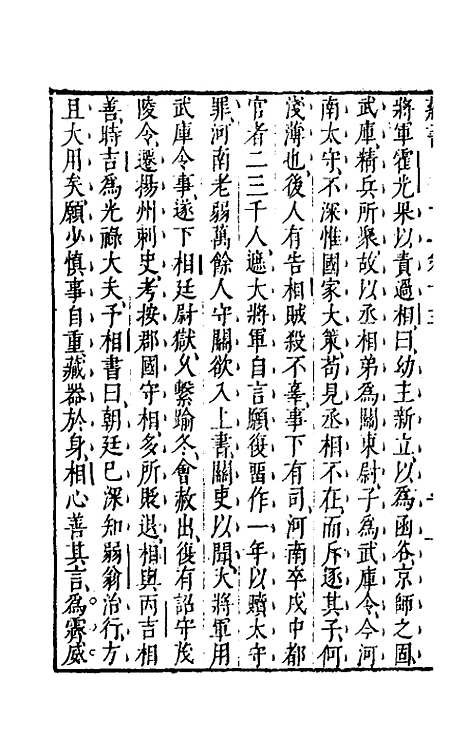 將軍霍光果以責過相曰幼主新立以為函谷京師之固
武庫精兵所聚故以丞相弟為關東尉子為武庫令今河
南太守不深惟國家大策苟見丞相不在而斥逐其子何
淺薄也後人有告相賊殺不辜事下有司河南卒戍中都
官者二三千人遮大將軍自言願復畱作一年以贖太守
罪河南老弱萬餘人守關欲入上書關吏以聞大將軍用
武庫令事遂下相廷尉獄久繫踰冬會赦出復有詔守茂
陵令遷揚州刺史考按郡國守相多所貶退相與丙吉相
善時吉為光祿大夫予相書曰朝廷已深知弱翁治行方
且大用矣願少慎事自重藏器於身相心善其言為霽威